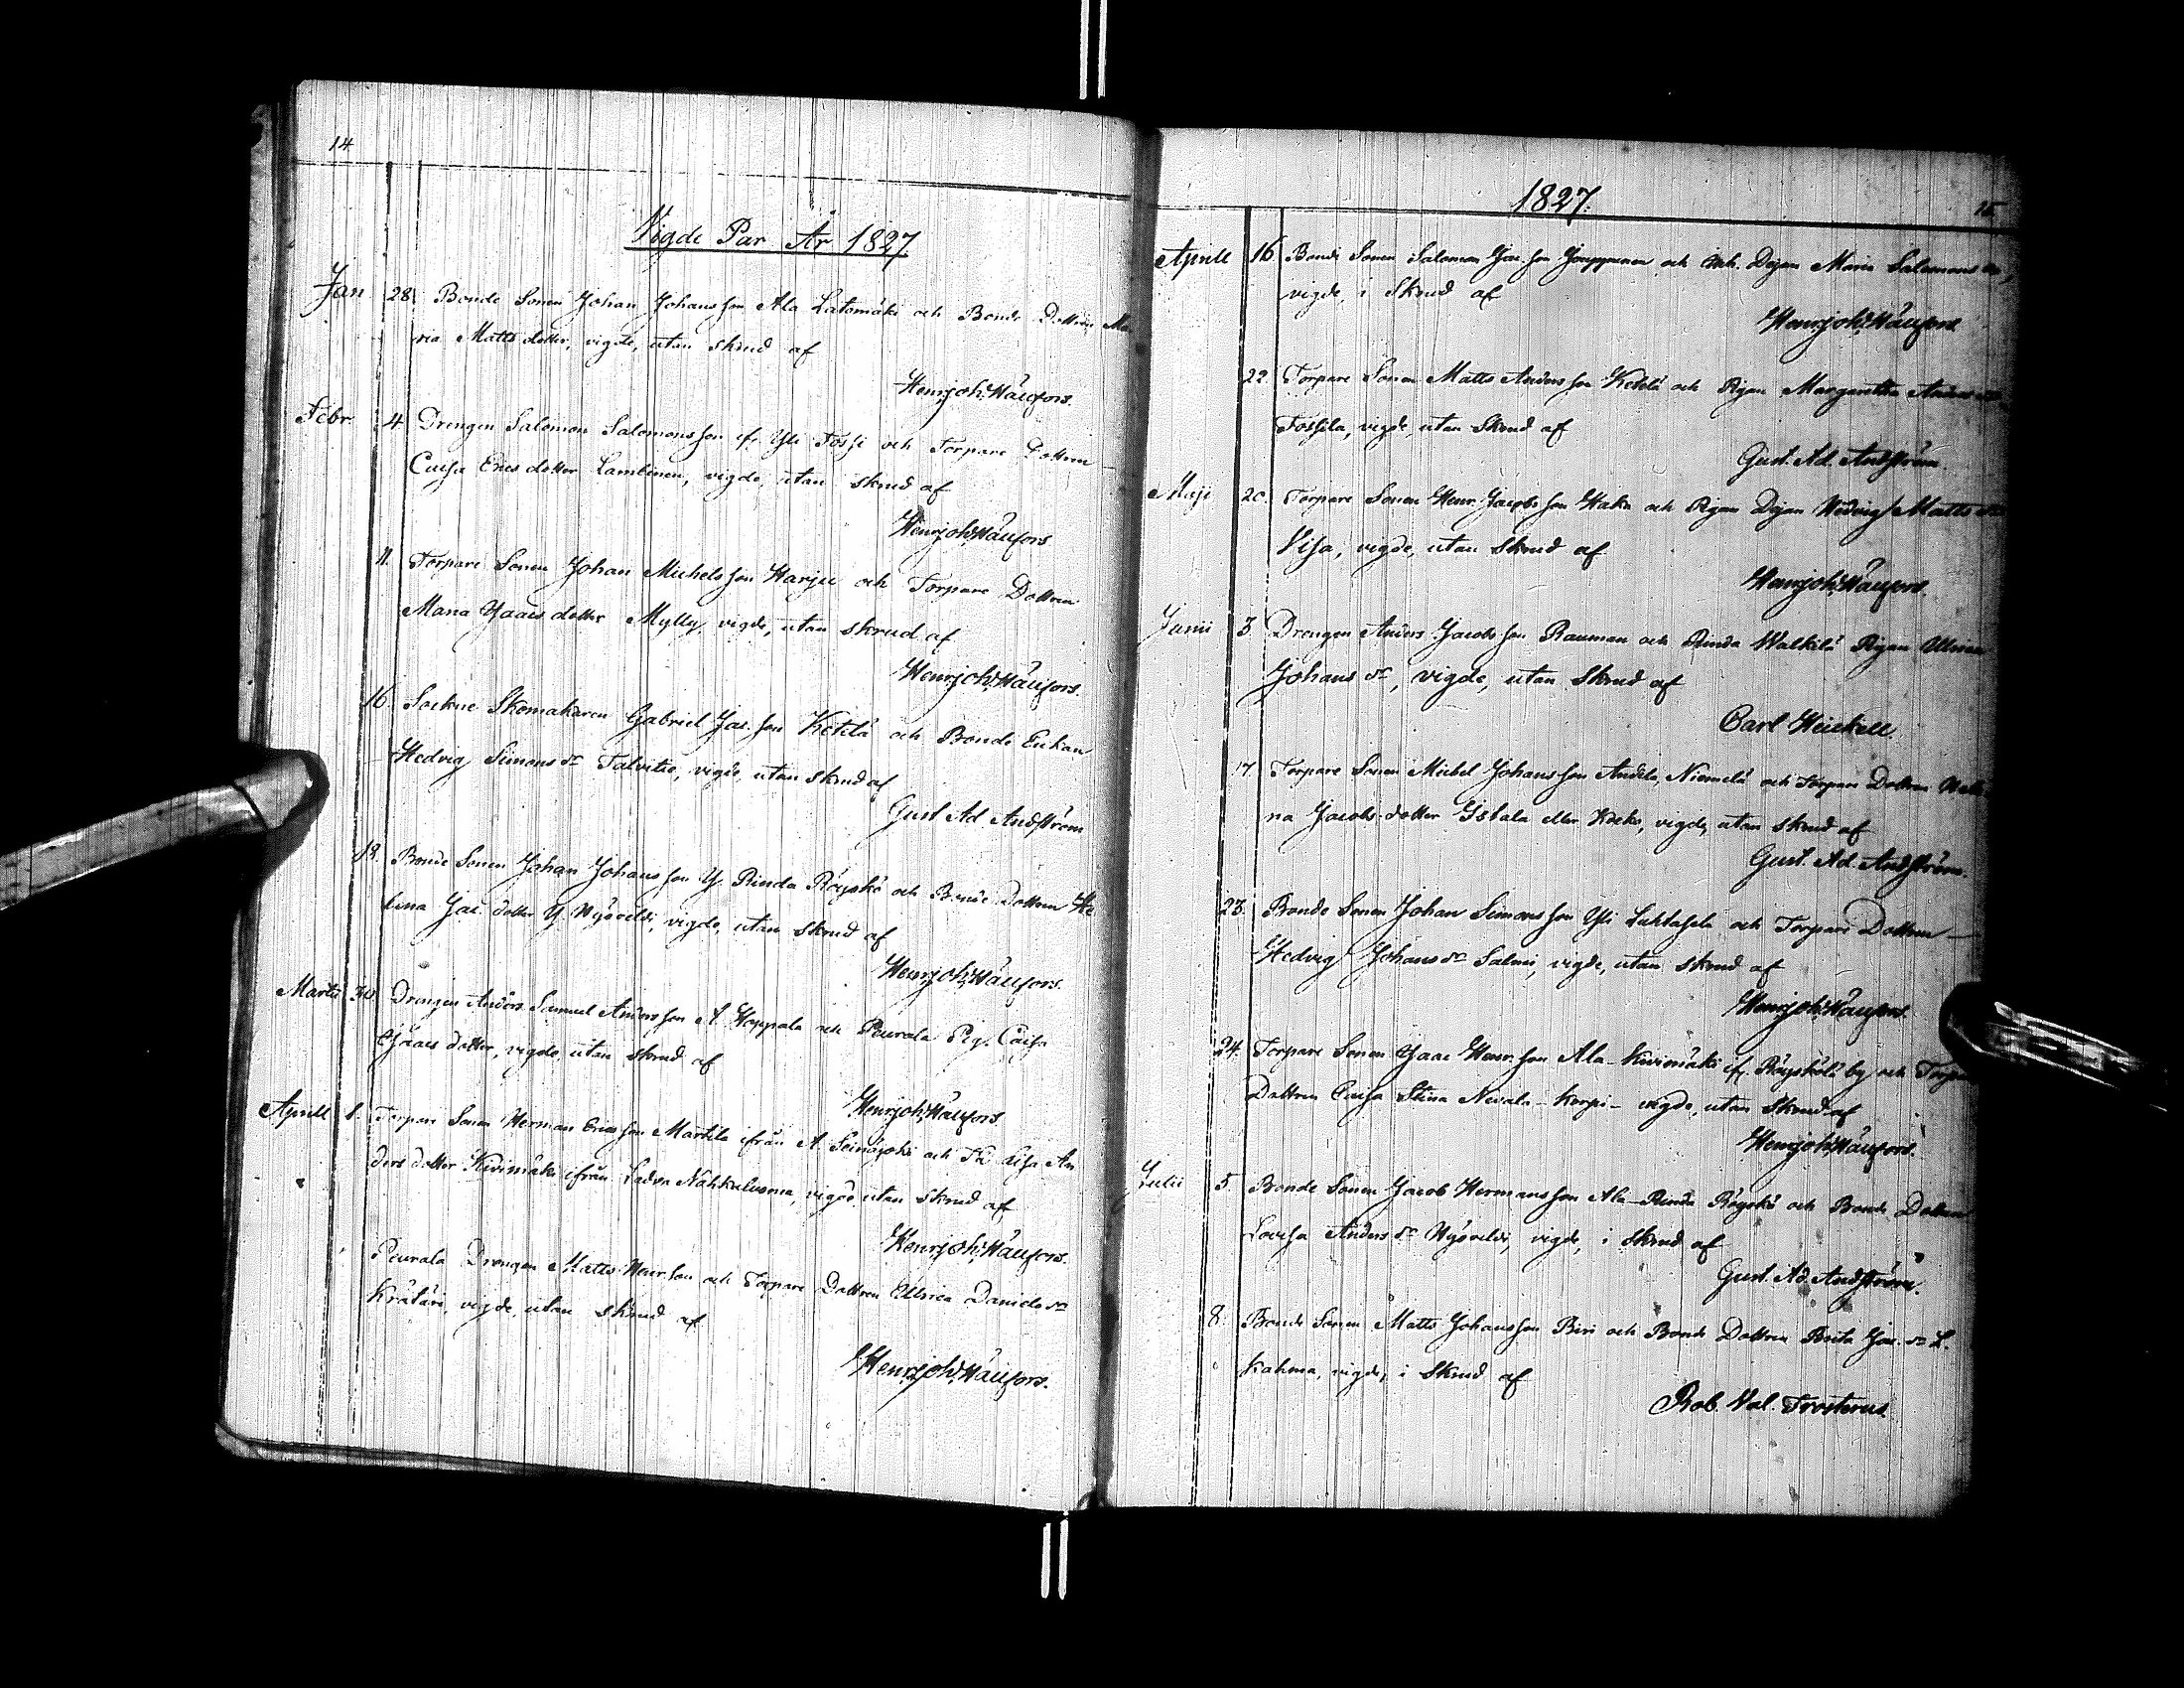 14
Vigde Par År 1827
Jan 28. Bonde Sonen Johan Johansson Ala Latomäki och Bonde Dottren Ma
ria Mattsdotter, vigde, utan skrud af
Henr. Joh. Wäufors.
Febr. 4 Drengen Salomon Salomonsson ifr. Yli Fossi och Torpare Dottren
Caisa Ericsdotter Lambinen, vigde, utan skrud af
Henr. Joh. Wäufors
11. Torpare Sonen Johan Michelsson Harju och Torpare Dottren
Maria Isaacsdotter Mylly, vigde, utan skrud af
Henr. Joh. Wäufors.
16. Sockne Skomakaren Gabriel Jac.son Ketelä och Bonde Enkan
Hedvig Simons dr Talvitie, vigde, utan skrud af
Gust Ad. Andström
18. Bonde Sonen Johan Johansson Y. Rinda Röyskö och Bonde Dottren He
lena Jac. dotter Y. , vigde, utan skrud af
Henr. Joh. Wäufors.
Martii 30. Drengen Anders Samuel Andersson A. Hoppala och Peurala Pig. Caisa
Isaacs dotter, vigde, utan skrud af
Henr. Joh. Wäufors.
Aprill 1. Torpare Sonen Herman Ericsson Martila ifrån A. Seinäjoki och Lisa An
ders dotter Kivimäki ifrån , vigde, utan skrud af
Henr. Joh. Wäufors.
Peurala Drengen Matts Henr.son och Torpare Dottren Ulbrica Daniels dr
, vigde, utan skrud af
Henr. Joh. Wäufors.
1827.
15
Aprill 16 Bonde Sonen Salomon Jac.son Jouppinen och Dejan Maria Salomons dr,
vigde, i Skrud af
Henr. Joh. Wäufors
22. Torpare Sonen Matts Andersson Ketelä och Pigan Margaretha Anders dr
Fossila, vigde, utan skrud af
Gust. Ad. Andström.
Maji 20. Torpare Sonen Henr. Jacobsson Haka och Pigan Dejan Hedvig Matts dr
, vigde, utan skrud af
Henr. Joh. Wäufors.
Junii 3. Drengen Anders Jacobsson Rauman och Rinda Walkilä Pigan Ulbrica
Johans dr, vigde, utan skrud af
Carl Heickell
17 Torpare Sonen Michel Johansson Andila, Niemelä och Torpare Dottren Hele
na Jacobs dotter Istala eller , vigde, utan skrud af
Gust. Ad. Andström.
23. Bonde Sonen Johan Simonsson Yli Luhtasela och Torpare Dottren
Hedvig Johans dr Salmi, vigde, utan skrud af
Henr. Joh. Wäufors
24. Torpare Sonen Isaac Henr.son Ala-Kivimäki ifr. Röyskölä by och Torpare
Dottren Caisa Stina Nevala-korpi - vigde, utan skrud af
Henr. Joh. Wäufors.
Julii 5. Bonde Sonen Jacob Hermansson Ala-Rinda Röyskö och Bonde Dottren
Lovisa Anders dr , vigde, i skrud af
Gust. Ad. Andström.
8. Bonde Sonen Matts Johansson Piri och Bonde Dottren Brita Jac. dr L.
kahma, vigde, i skrud af
Rob. Val. Frosterus.